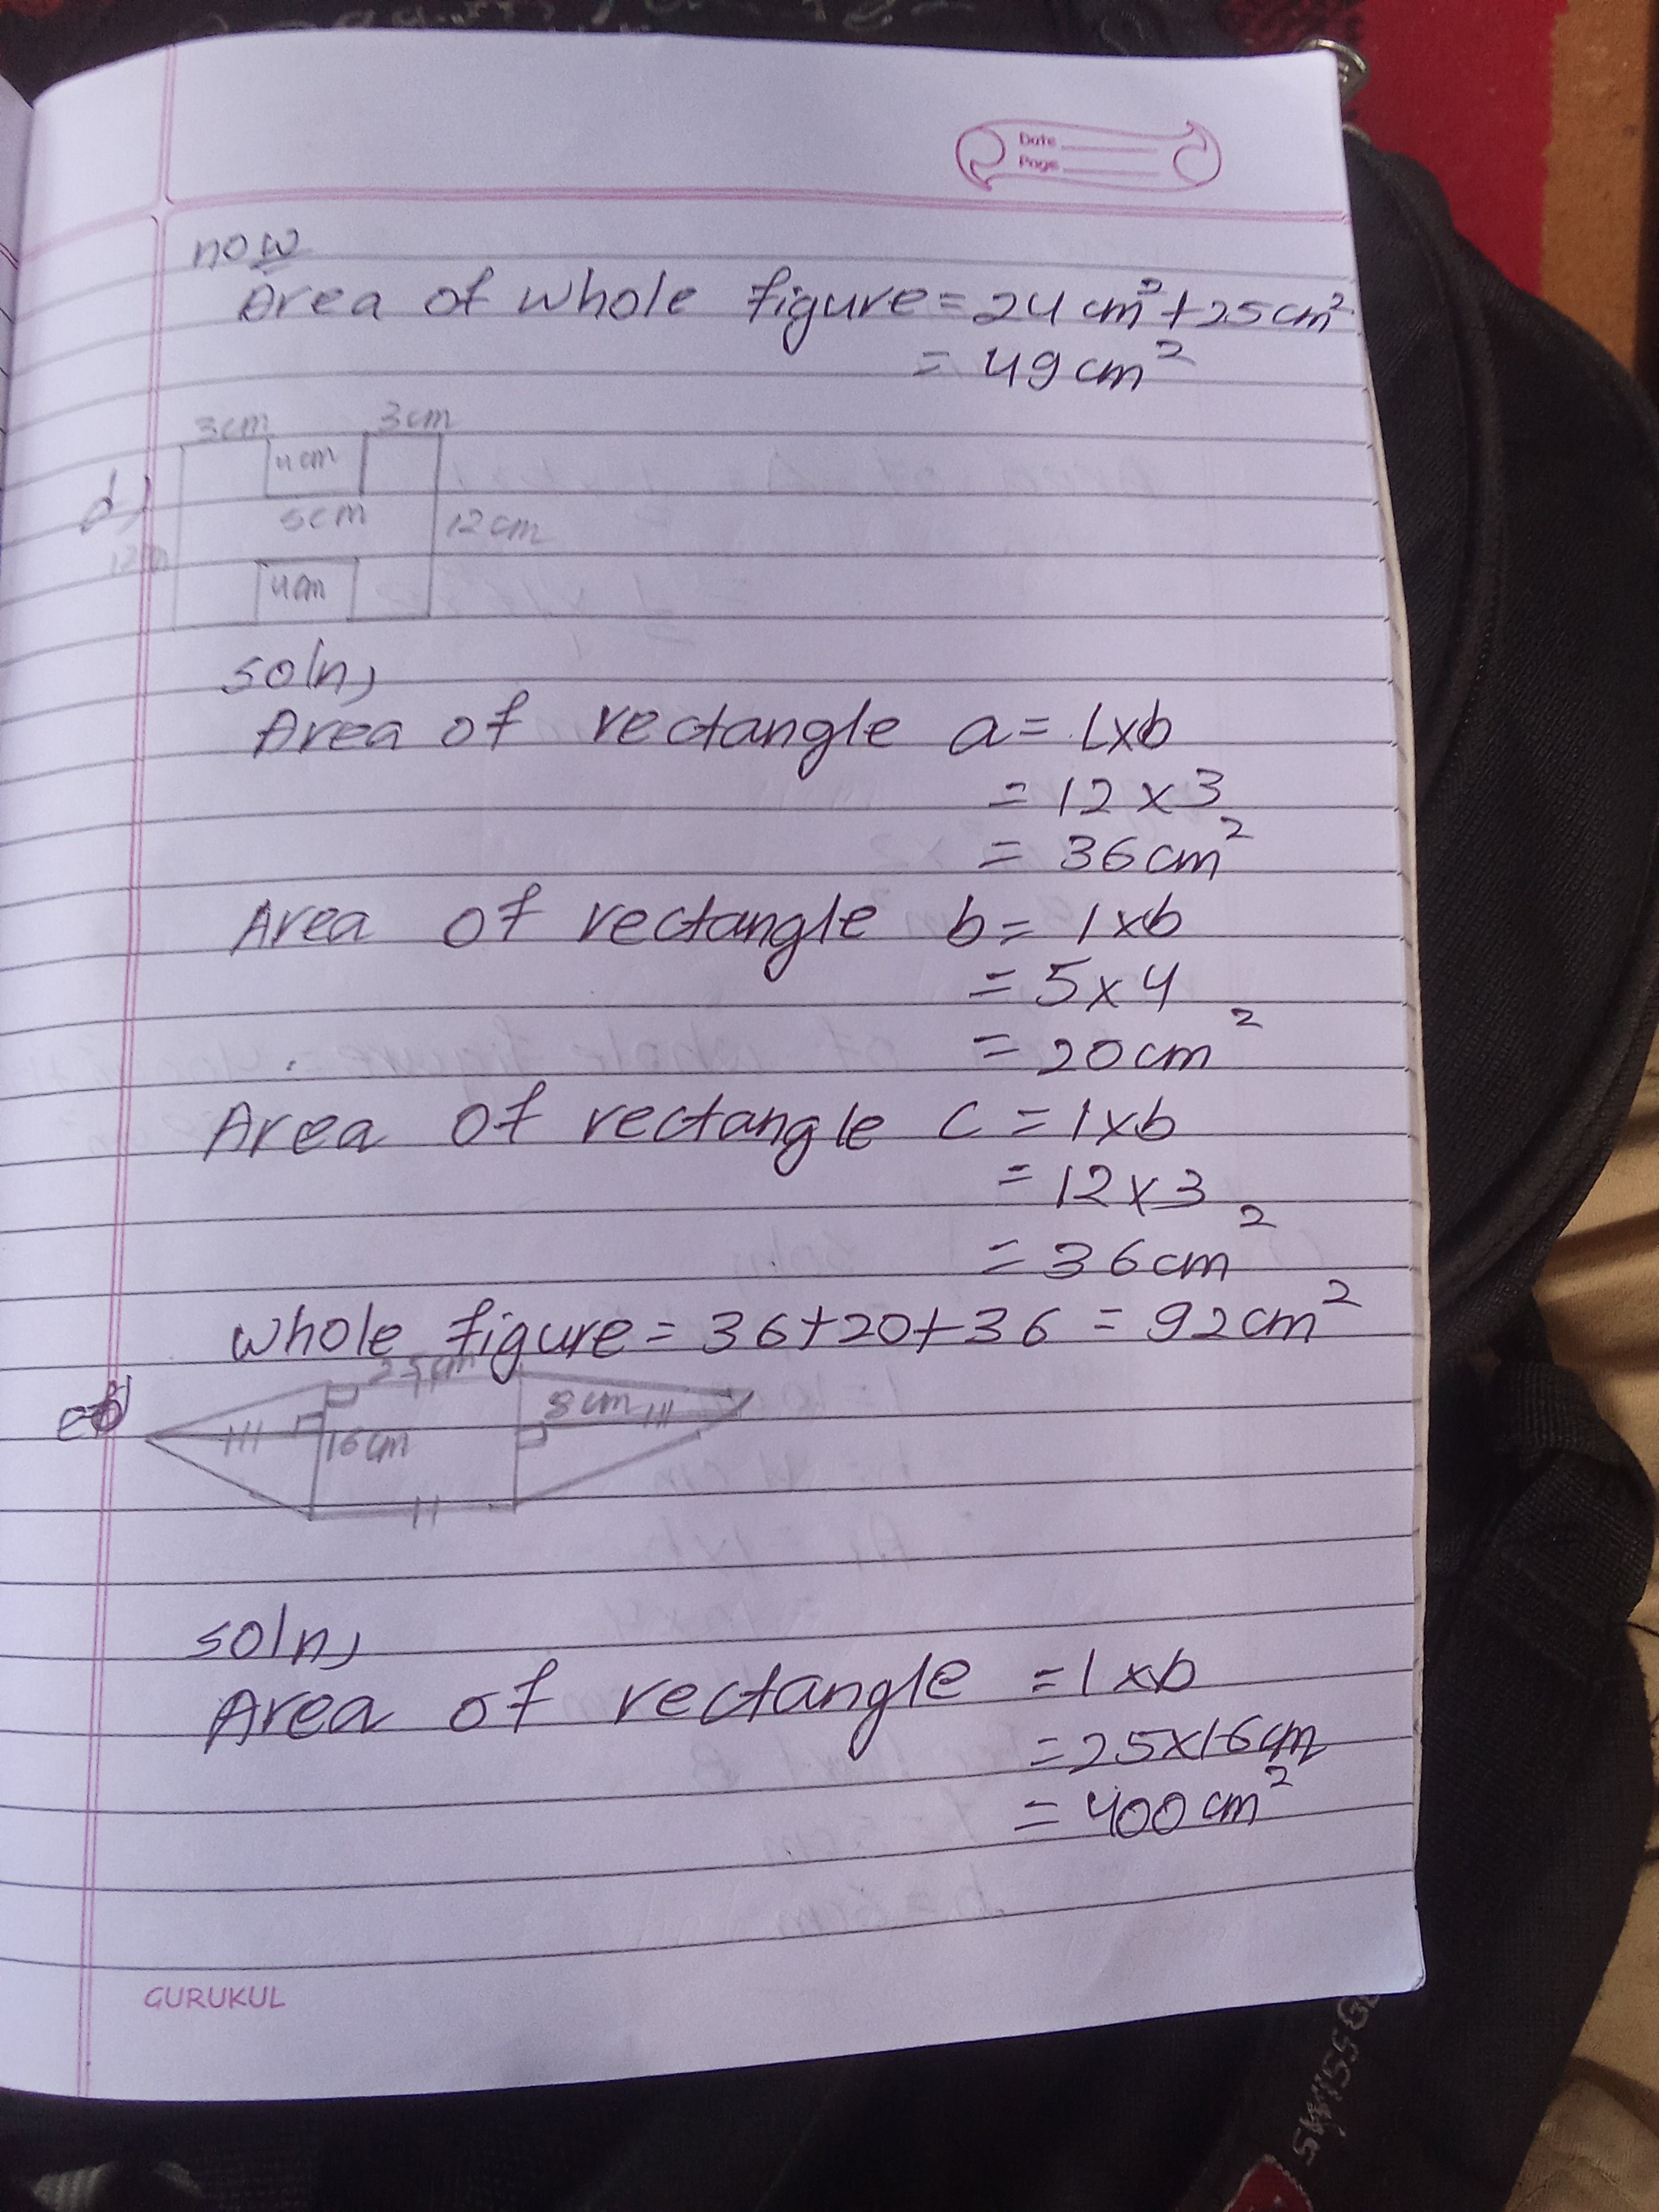 Date
Page
now
Area of whole figure = 24 cm² + 25 cm²
= 49 cm²
3cm 3cm
4cm
d)
5cm
12cm
12cm
4cm
soln,
Area of rectangle a = l×b
= 12 × 3
= 36 cm²
Area of rectangle b = l×b
= 5×4
= 20cm²
Area of rectangle c = l×b
= 12×3
= 36cm²
whole figure = 36+20+36 = 92cm²
25cm
e)
8cm
16cm
soln,
Area of rectangle = l×b
= 25×16cm
= 400 cm²
GURUKUL